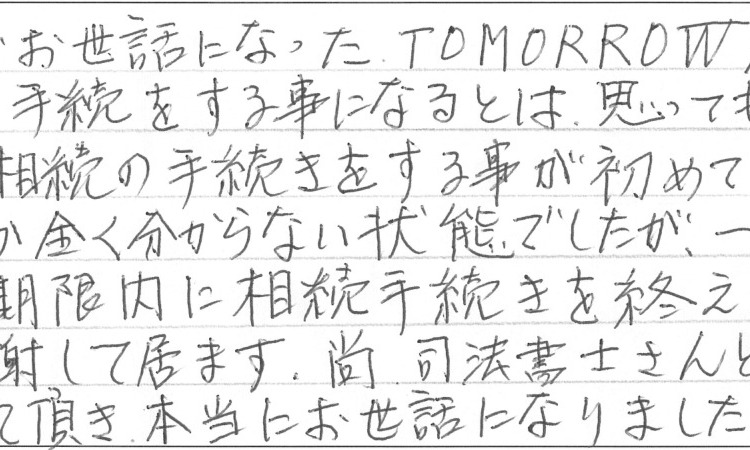 お世話になった.TOMORROW
手続をする事になるとは.思って
相続の手続きをする事が初めて
か全く分からない状態でしたが、一
期限内に相続手続きを終え
射して居ます.尚.司法書士さんと
て頂き.本当にお世話になりました